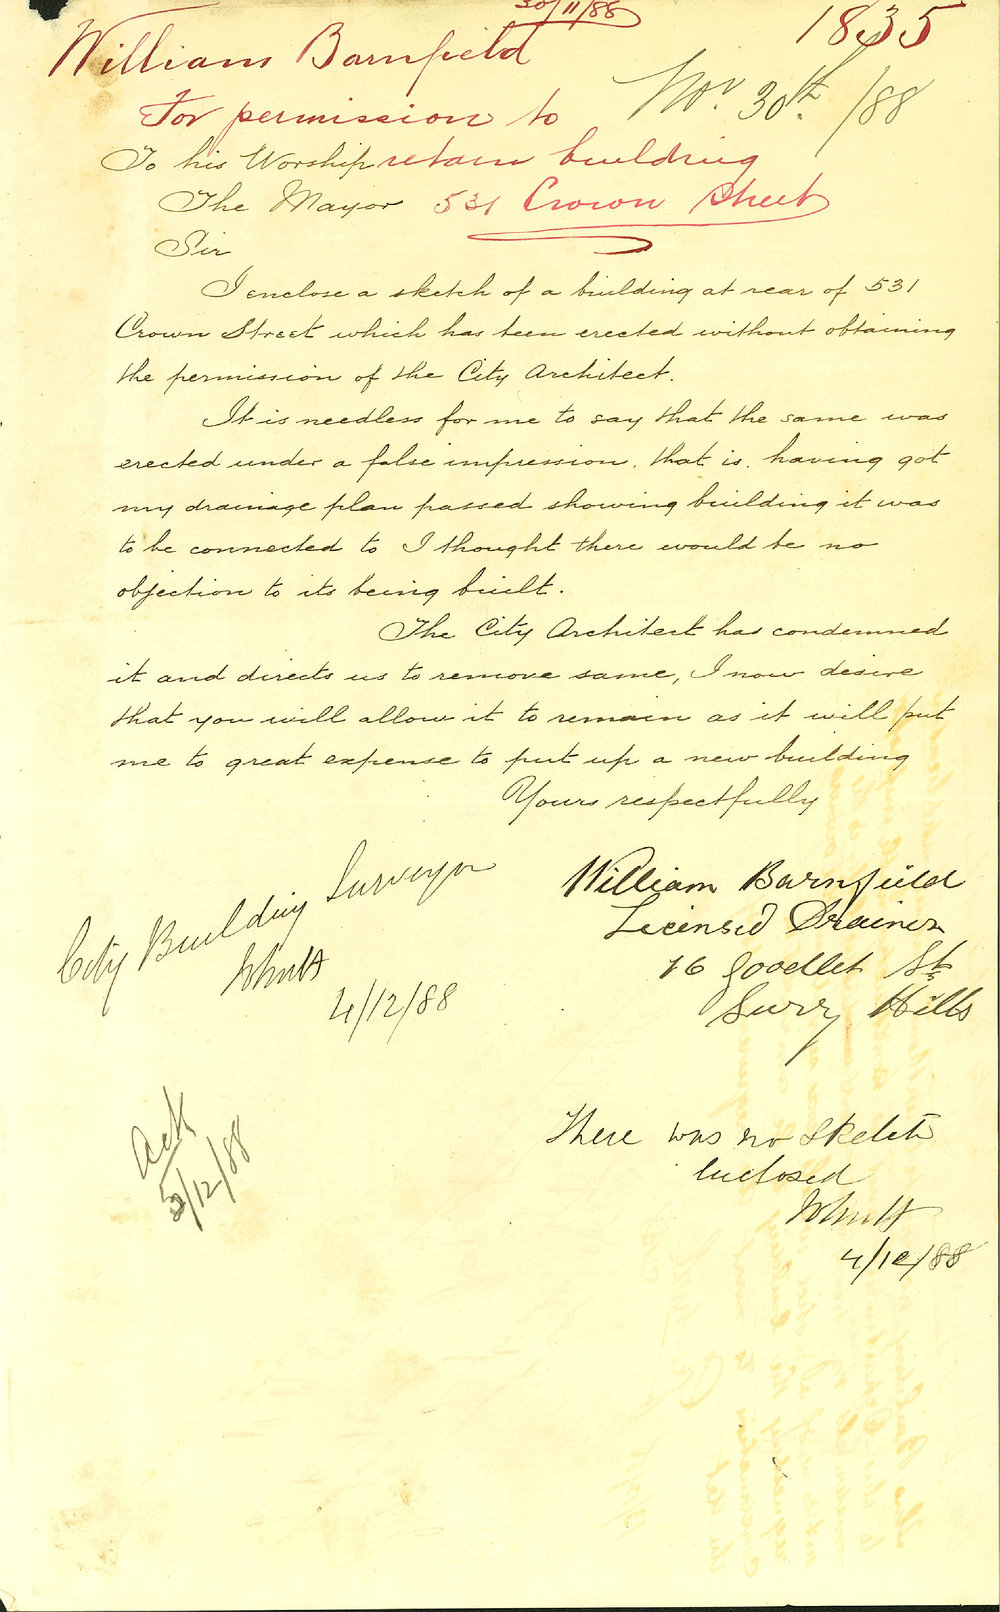 30/11/88
1835
William Barnfield
For permission to
retain building
531 Crown Street
Nov. 30th /88
To his Worship
The Mayor
Sir
I enclose a sketch of a building at rear of 531
Crown Street which has been erected without obtaining
the permission of the City Architect.
It is needless for me to say that the same was
erected under a false impression, that is, having got
my drainage plan passed showing building it was
to be connected to I thought there would be no
objection to its being built.
The City Architect has condemned
it and directs us to remove same, I now desire
that you will allow it to remain as it will put
me to great expense to put up a new building
Yours respectfully
William Barnfield
Licensed Drainer
16 Goodlet St
Surry Hills
City Building Surveyor
4/12/88
Ack
5/12/88
There was no sketch
enclosed
4/12/88